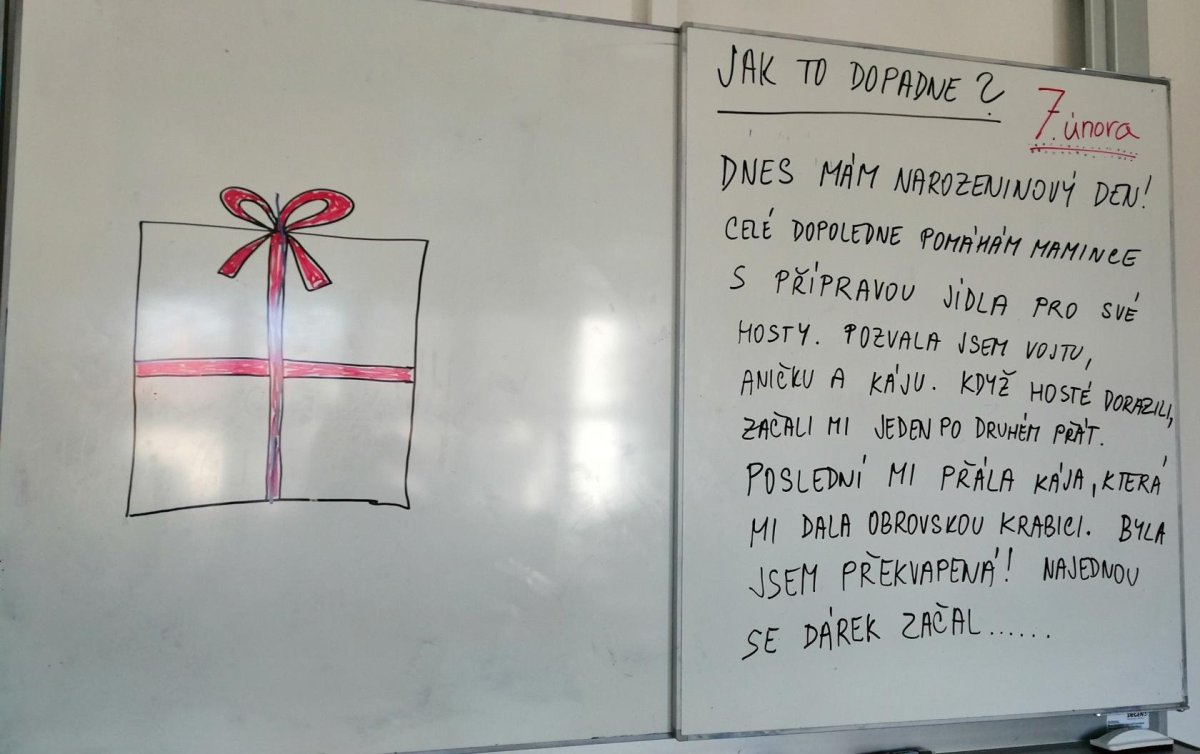 JAK TO DOPADNE ?
7. února
DNES MÁM NAROZENINOVÝ DEN!
CELÉ DOPOLEDNE POMÁHÁM MAMINCE
S PŘÍPRAVOU JÍDLA PRO SVÉ
HOSTY. POZVALA JSEM VOJTU,
ANIČKU A KÁJU. KDYŽ HOSTÉ DORAZILI,
ZAČALI MI JEDEN PO DRUHÉM PŘÁT.
POSLEDNÍ MI PŘÁLA KÁJA, KTERÁ
MI DALA OBROVSKOU KRABICI. BYLA
JSEM PŘEKVAPENÁ! NAJEDNOU
SE DÁREK ZAČAL......